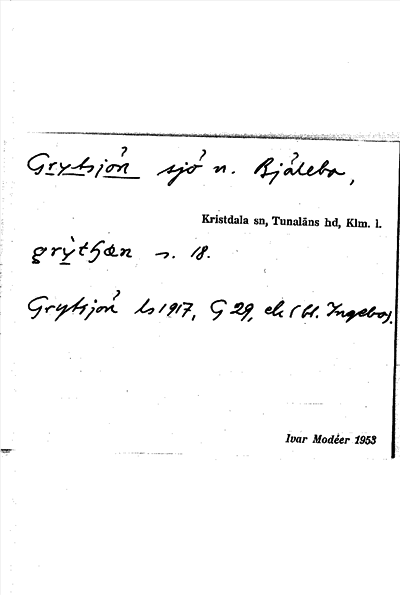 Grytsjön sjö n. Bjälebo,
Kristdala sn, Tunaläns hd, Klm. l.
s. 18.
Grytsjön ls 1917, G 29, ek (bl. Ingebo).
Ivar Modéer 1953